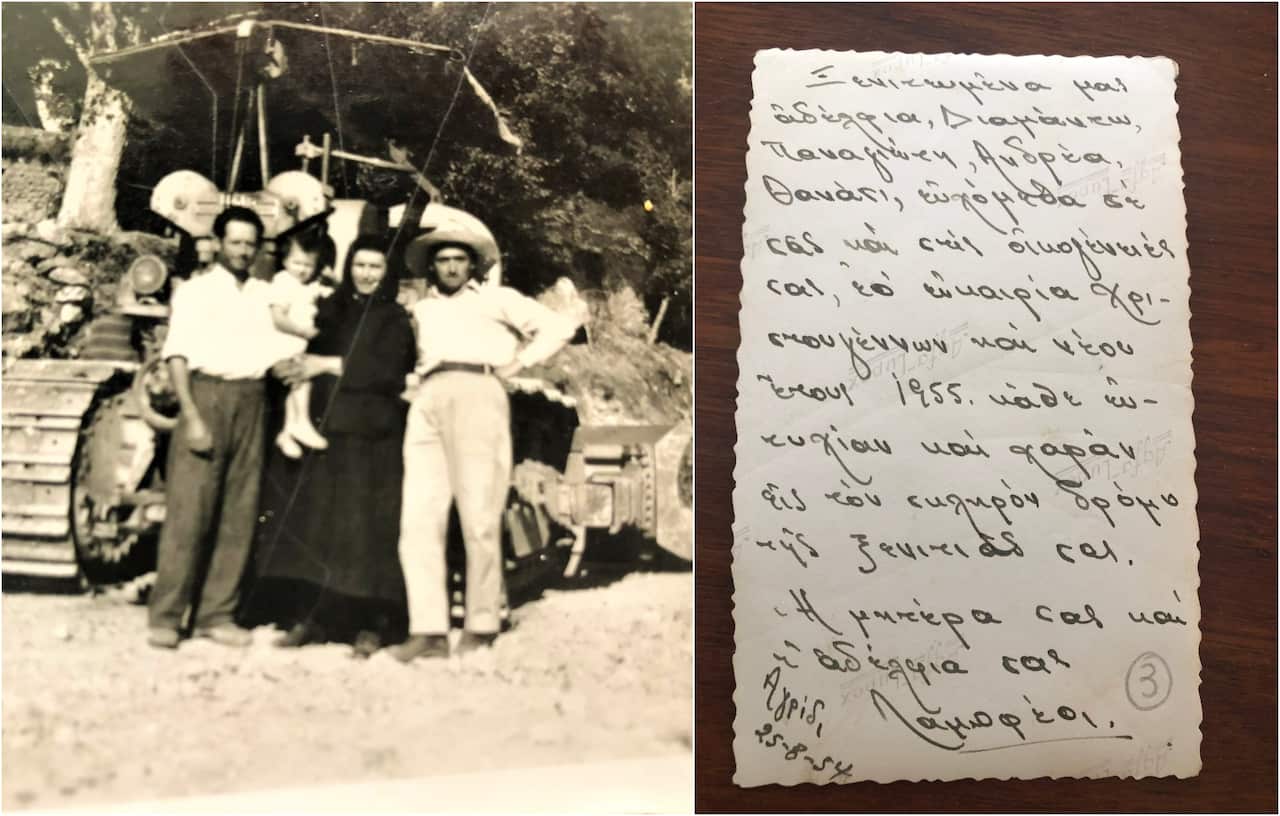 Ξενιτωμένα μας
ἀδέλφια, Διαμάντω,
Παναγιώτη, Ἀνδρέα,
Θανάση, εὐχόμεθα σε
σᾶς καὶ στὶς οἰκογένειές
σας, ἐό εὐκαιρία Χρι-
στουγέννων καὶ νέου
ἔτους 1955. κάθε εὐ-
τυχίαν καὶ χαρὰν
εἰς τὸν σκληρὸν δρόμο
τῆς ξενιτιᾶς σας.
Ἡ μητέρα σας καὶ
τ' ἀδέλφια σας
Λαμπρέοι.
Αγρίδι
25-8-54
3